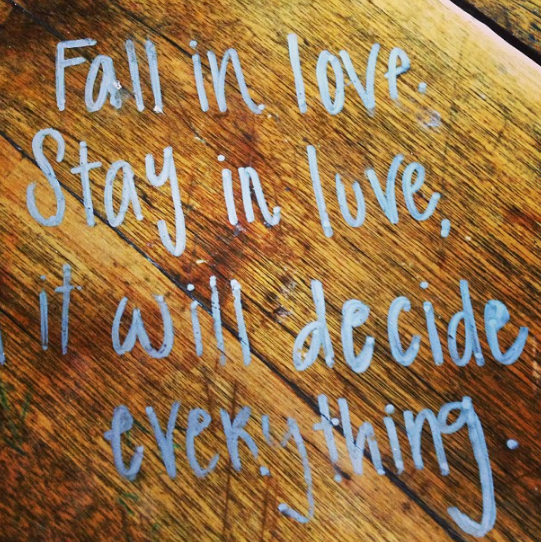 Fall in love.
Stay in love,
it will decide
everything.